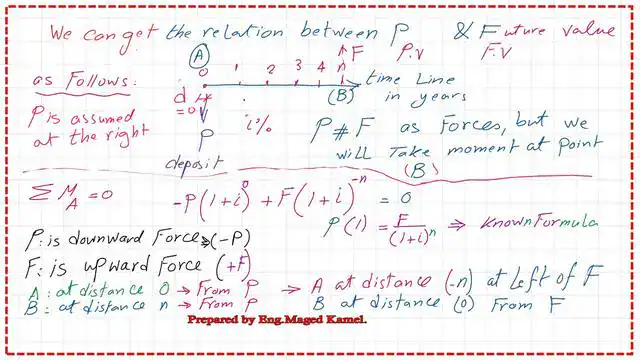 We can get the relation between P & Future value
P.V F.V
A F
0 1 2 3 4 n
as Follows: time Line
d (B) in years
=0
P is assumed i% P # F as Forces, but we
at the right P will Take moment at point
deposit (B)
ΣM_A = 0 -P(1+i)^0 + F(1+i)^-n = 0
P(1) = F/(1+i)^n ⇒ Known Formula
P: is downward Force ⇒ (-P)
F: is upward Force (+F)
A: at distance 0 → From P ⇒ A at distance (-n) at Left of F
B: at distance n → From P B at distance (0) From F
Prepared by Eng.Maged Kamel.